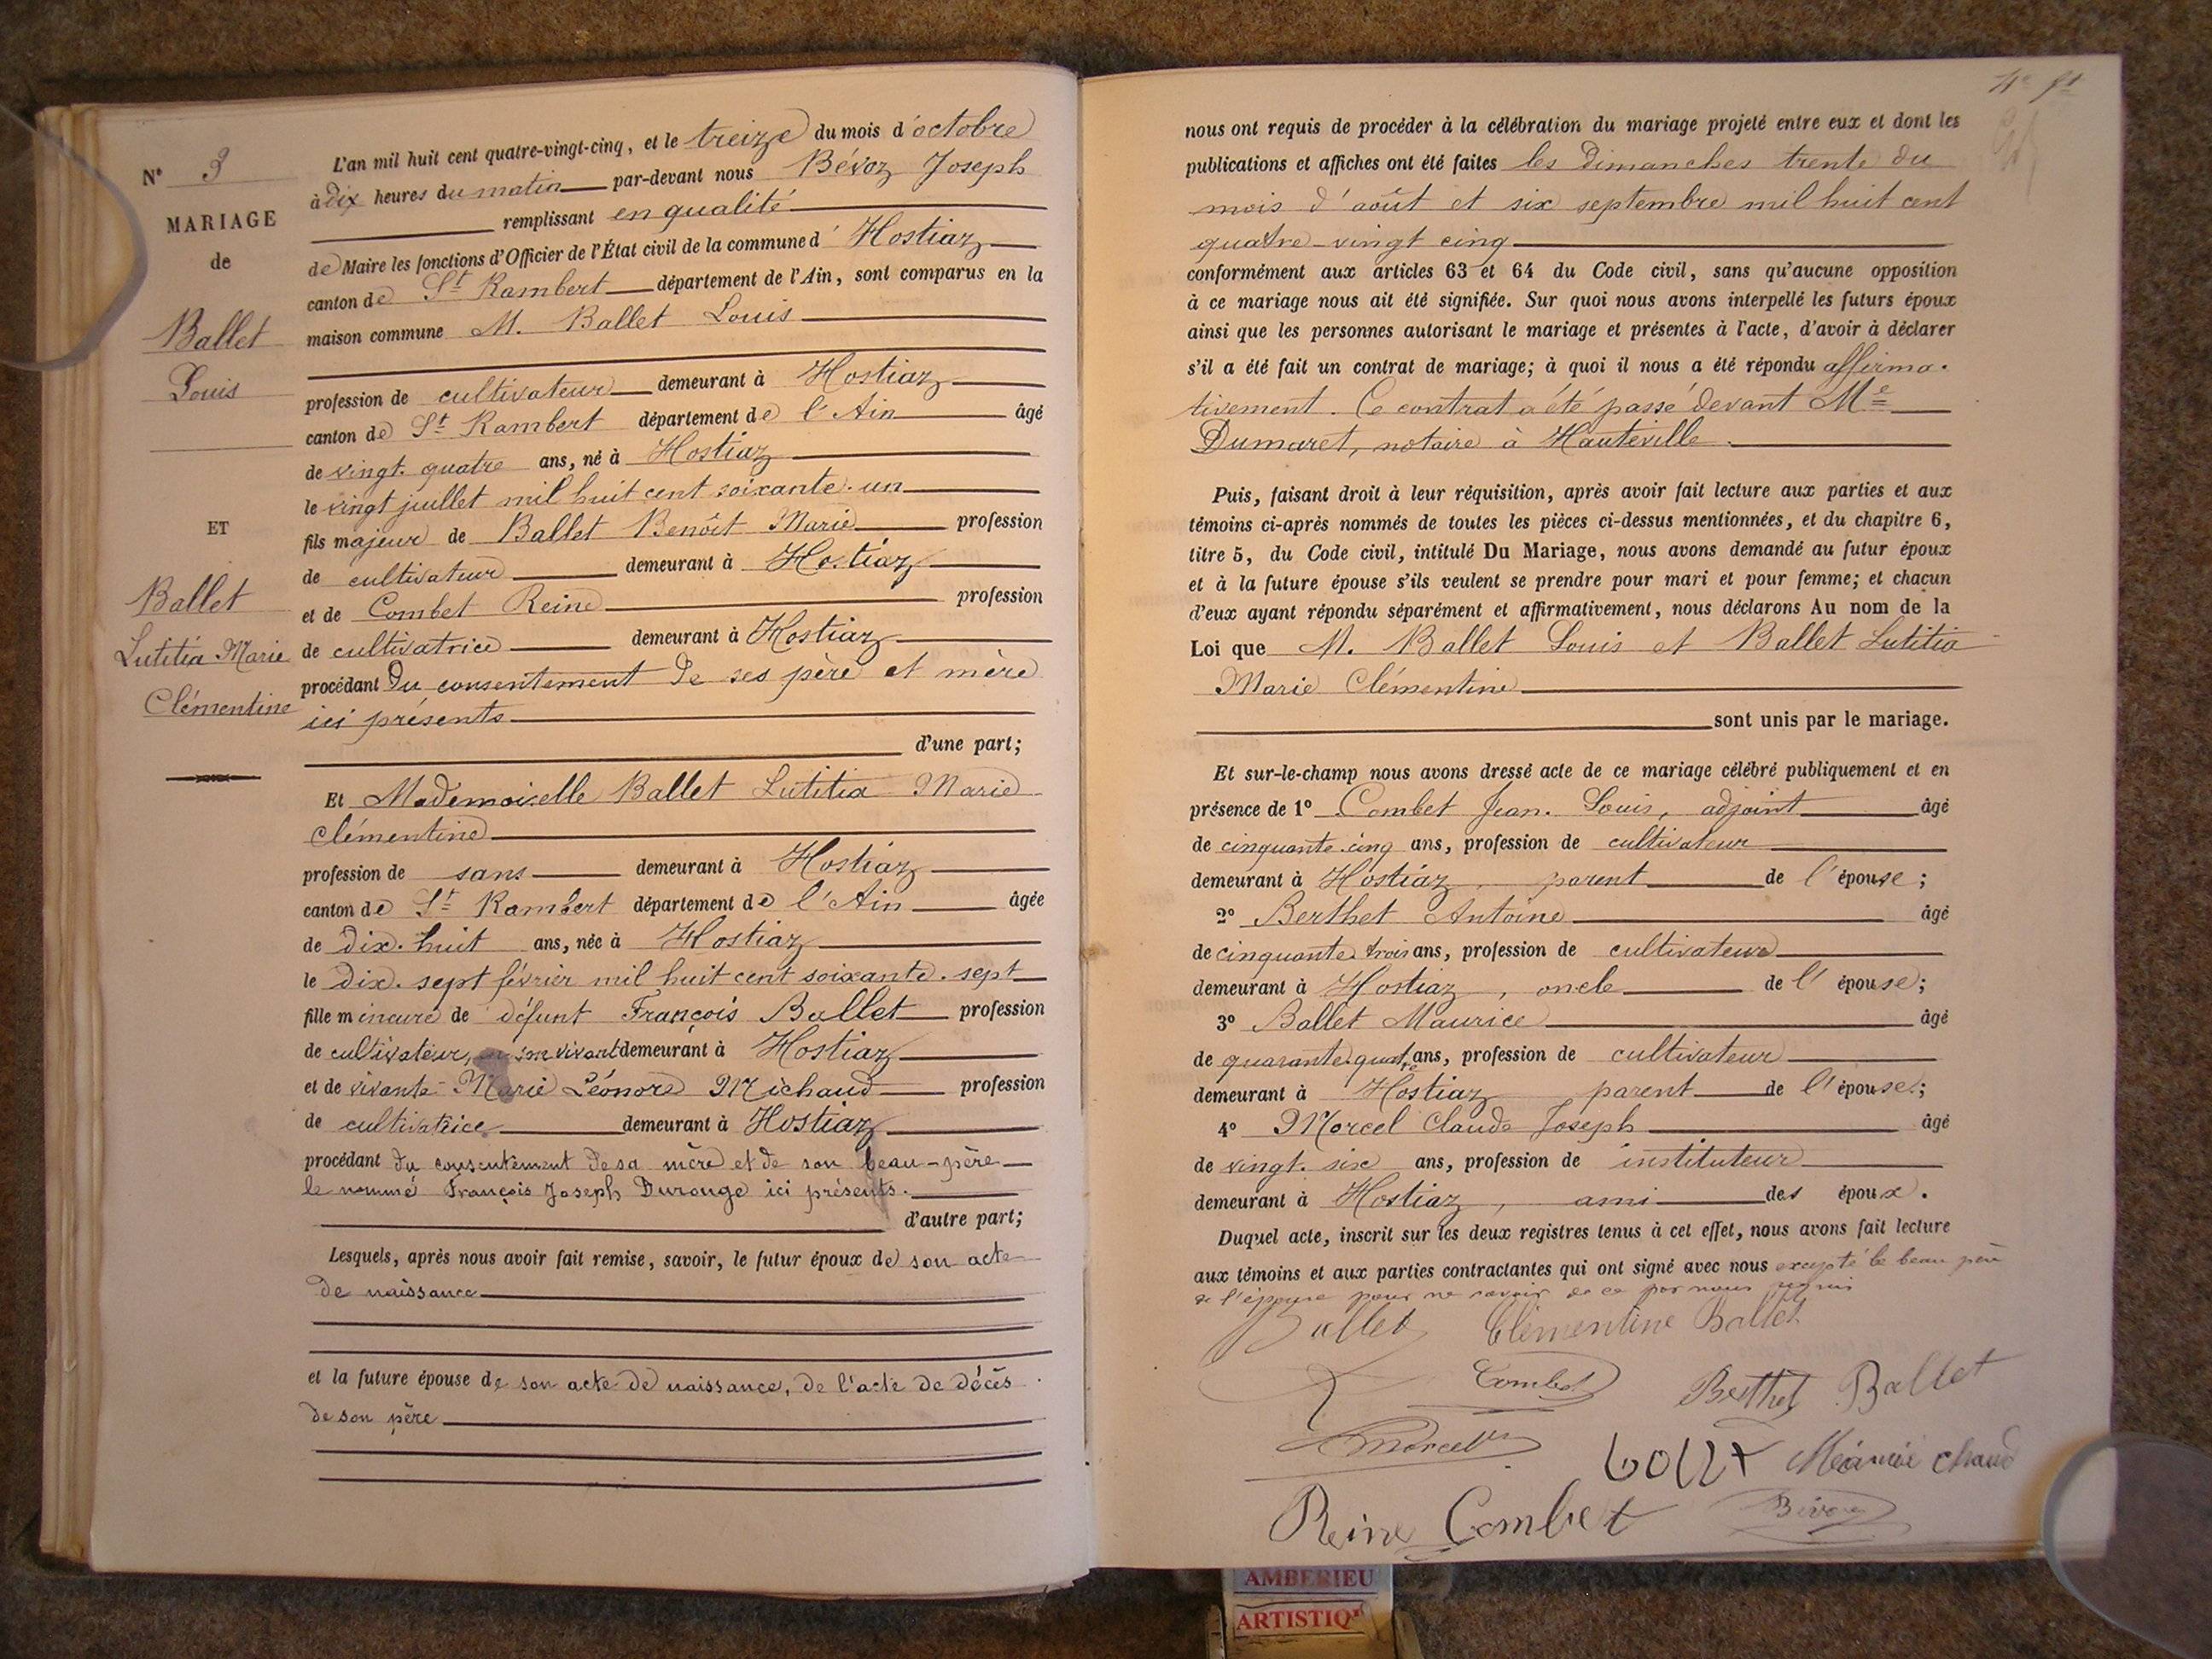 N° 3
MARIAGE
de
Ballet
Louis
ET
Ballet
Lutitia Marie
Clémentine
L'an mil huit cent quatre-vingt-cinq, et le treize du mois d'octobre
à dix heures du matin par-devant nous Bévoz Joseph
remplissant en qualité
de Maire les fonctions d'Officier de l'État civil de la commune d'Hostiaz
canton de St Rambert département de l'Ain, sont comparus en la
maison commune M. Ballet Louis
profession de cultivateur demeurant à Hostiaz
canton de St Rambert département de l'Ain âgé
de vingt-quatre ans, né à Hostiaz
le vingt juillet mil huit cent soixante-un
fils majeur de Ballet Benoît Marie profession
de cultivateur demeurant à Hostiaz
et de Combet Reine profession
de cultivatrice demeurant à Hostiaz
procédant du consentement de ses père et mère
ici présents
d'une part;
Et Mademoiselle Ballet Lutitia Marie
Clémentine
profession de sans demeurant à Hostiaz
canton de St Rambert département de l'Ain âgée
de dix-huit ans, née à Hostiaz
le dix-sept février mil huit cent soixante-sept
fille mineure de défunt François Ballet profession
de cultivateur, son vivant demeurant à Hostiaz
et de vivante Marie Léonore Michaud profession
de cultivatrice demeurant à Hostiaz
procédant du consentement de sa mère et de son beau-père
le nommé François Joseph Durouge ici présents.
d'autre part;
Lesquels, après nous avoir fait remise, savoir, le futur époux de son acte
de naissance
et la future épouse de son acte de naissance, de l'acte de décès
de son père
nous ont requis de procéder à la célébration du mariage projeté entre eux et dont les
publications et affiches ont été faites les dimanches trente du
mois d'août et six septembre mil huit cent
quatre-vingt cinq
conformément aux articles 63 et 64 du Code civil, sans qu'aucune opposition
à ce mariage nous ait été signifiée. Sur quoi nous avons interpellé les futurs époux
ainsi que les personnes autorisant le mariage et présentes à l'acte, d'avoir à déclarer
s'il a été fait un contrat de mariage; à quoi il nous a été répondu affirma-
tivement. Ce contrat a été passé devant Me
Dumaret, notaire à Hauteville.
Puis, faisant droit à leur réquisition, après avoir fait lecture aux parties et aux
témoins ci-après nommés de toutes les pièces ci-dessus mentionnées, et du chapitre 6,
titre 5, du Code civil, intitulé Du Mariage, nous avons demandé au futur époux
et à la future épouse s'ils veulent se prendre pour mari et pour femme; et chacun
d'eux ayant répondu séparément et affirmativement, nous déclarons Au nom de la
Loi que M. Ballet Louis et Ballet Lutitia
Marie Clémentine
sont unis par le mariage.
Et sur-le-champ nous avons dressé acte de ce mariage célébré publiquement et en
présence de 1° Combet Jean-Louis, adjoint âgé
de cinquante-cinq ans, profession de cultivateur
demeurant à Hostiaz, parent de l'épouse;
2° Berthet Antoine âgé
de cinquante trois ans, profession de cultivateur
demeurant à Hostiaz, oncle de l'épouse;
3° Ballet Maurice âgé
de quarante-quatre ans, profession de cultivateur
demeurant à Hostiaz parent de l'épouse;
4° Morcel Claude Joseph âgé
de vingt-six ans, profession de instituteur
demeurant à Hostiaz, ami des époux.
Duquel acte, inscrit sur les deux registres tenus à cet effet, nous avons fait lecture
aux témoins et aux parties contractantes qui ont signé avec nous excepté le beau père
de l'épouse pour ne savoir de ce par nous requis
Ballet Clémentine Ballet
Combet Berthet Ballet
Morcel
Reine Combet Bévoz
AMBERIEU
ARTISTIQ